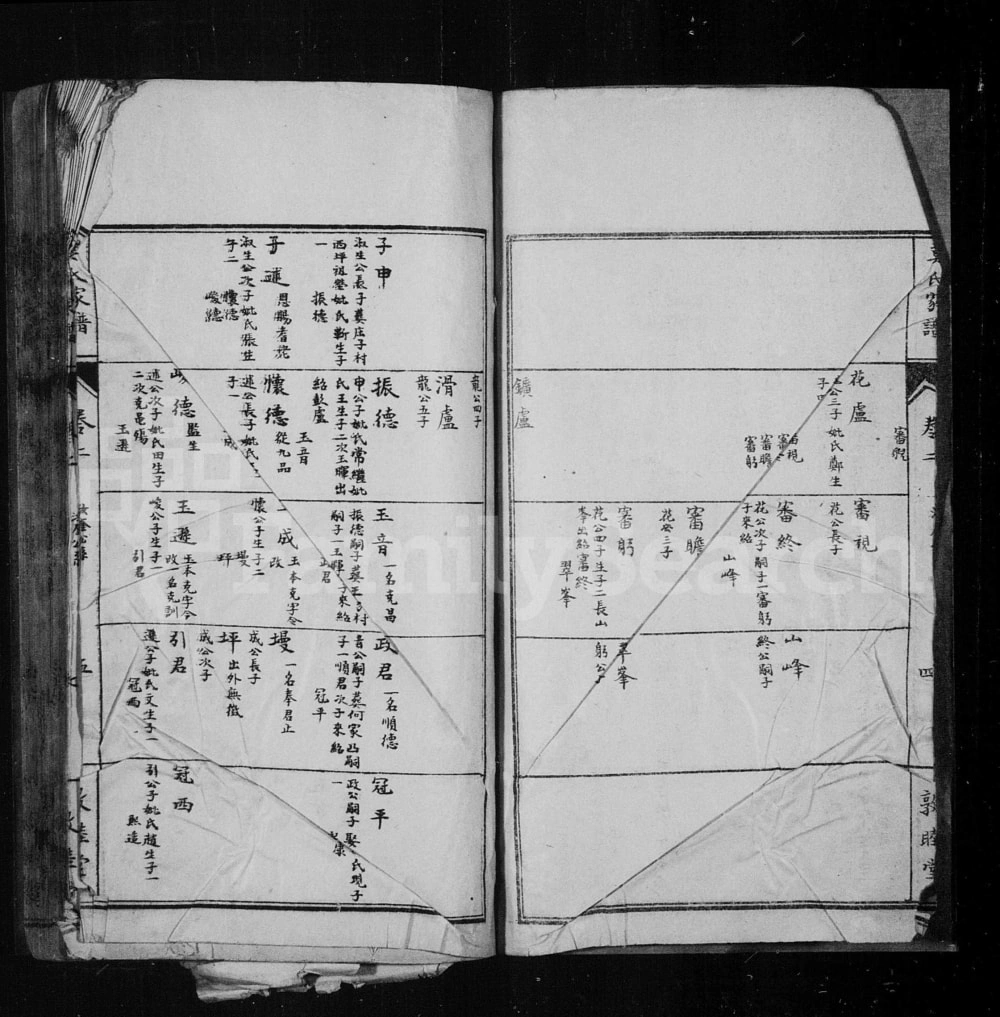 氏家譜
卷二
四
敦睦堂
審視
花盧
公三子妣氏鄭生
審瞻
審躬
鑛盧
審視
花公長子
審終
花公次子嗣子一審躬
子來紹
山峰
審瞻
花公三子
審躬
花公四子生子二長山
峯出紹審終
翠峯
山峰
終公嗣子
翠峯
躬公子
子申
淑生公長子葬庄子村
西坪祖塋妣氏靳生子
一
振德
子璉
恩賜耆老
淑生公次子妣氏張生
子二
懷德
峻德
龍公四子
滑盧
龍公五子
振德
申公子妣氏常繼妣
氏王生子二次玉暉出
紹彭盧
玉音
懷德
從九品
璉公長子妣氏
子一
成
德
監生
璉公次子妣氏田生子
二次克
玉遜
玉音
一名克昌
振德嗣子葬王村
嗣子一玉暉子來紹
君
成
玉本克字今
改
懷公子生子二
墁
坪
玉遜
玉本克字今
改一名克訓
峻公子生子一
引君
政君
一名順德
音公嗣子葬何家凹嗣
子一順君次子來紹
冠平
墁
一名奉君止
成公長子
坪
出外無徵
成公次子
引君
遜公子妣氏文生子一
冠西
冠平
政公嗣子娶氏現子
一
冠西
引公子妣氏趙生子一
熙造
家譜